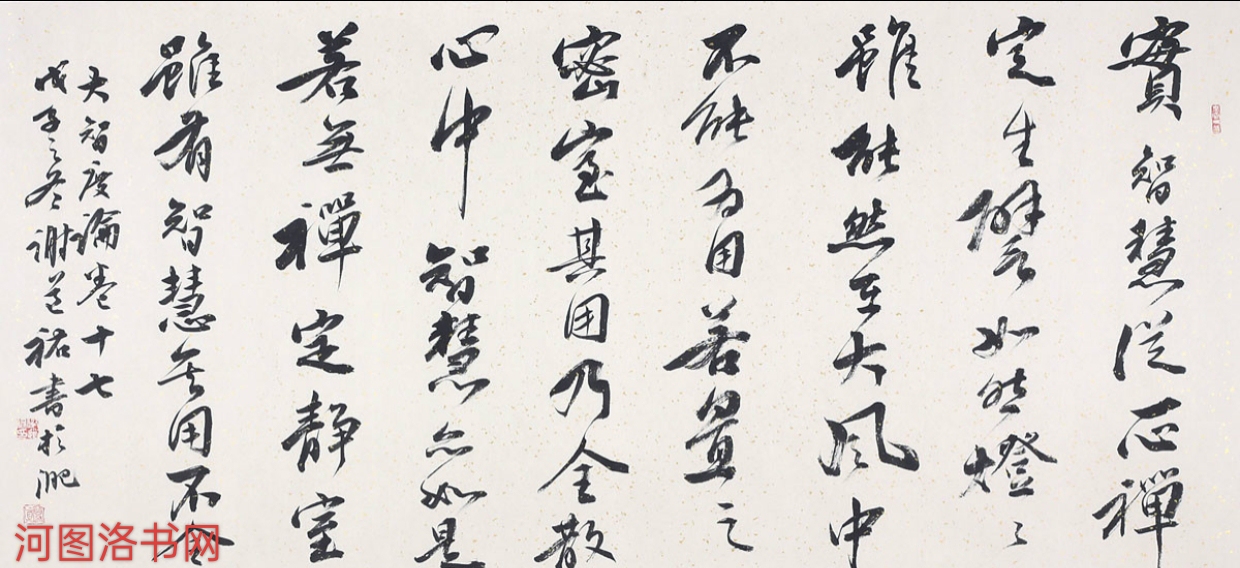 實智慧從一心禪
定生譬如然燈燈
雖能然在大風中
不能為用若置之
密室其用乃全散
心中智慧亦如是
若無禪定靜室
雖有智慧其用不全
大智度論卷十七
戊子之冬謝道祐書於肥
河图洛书网